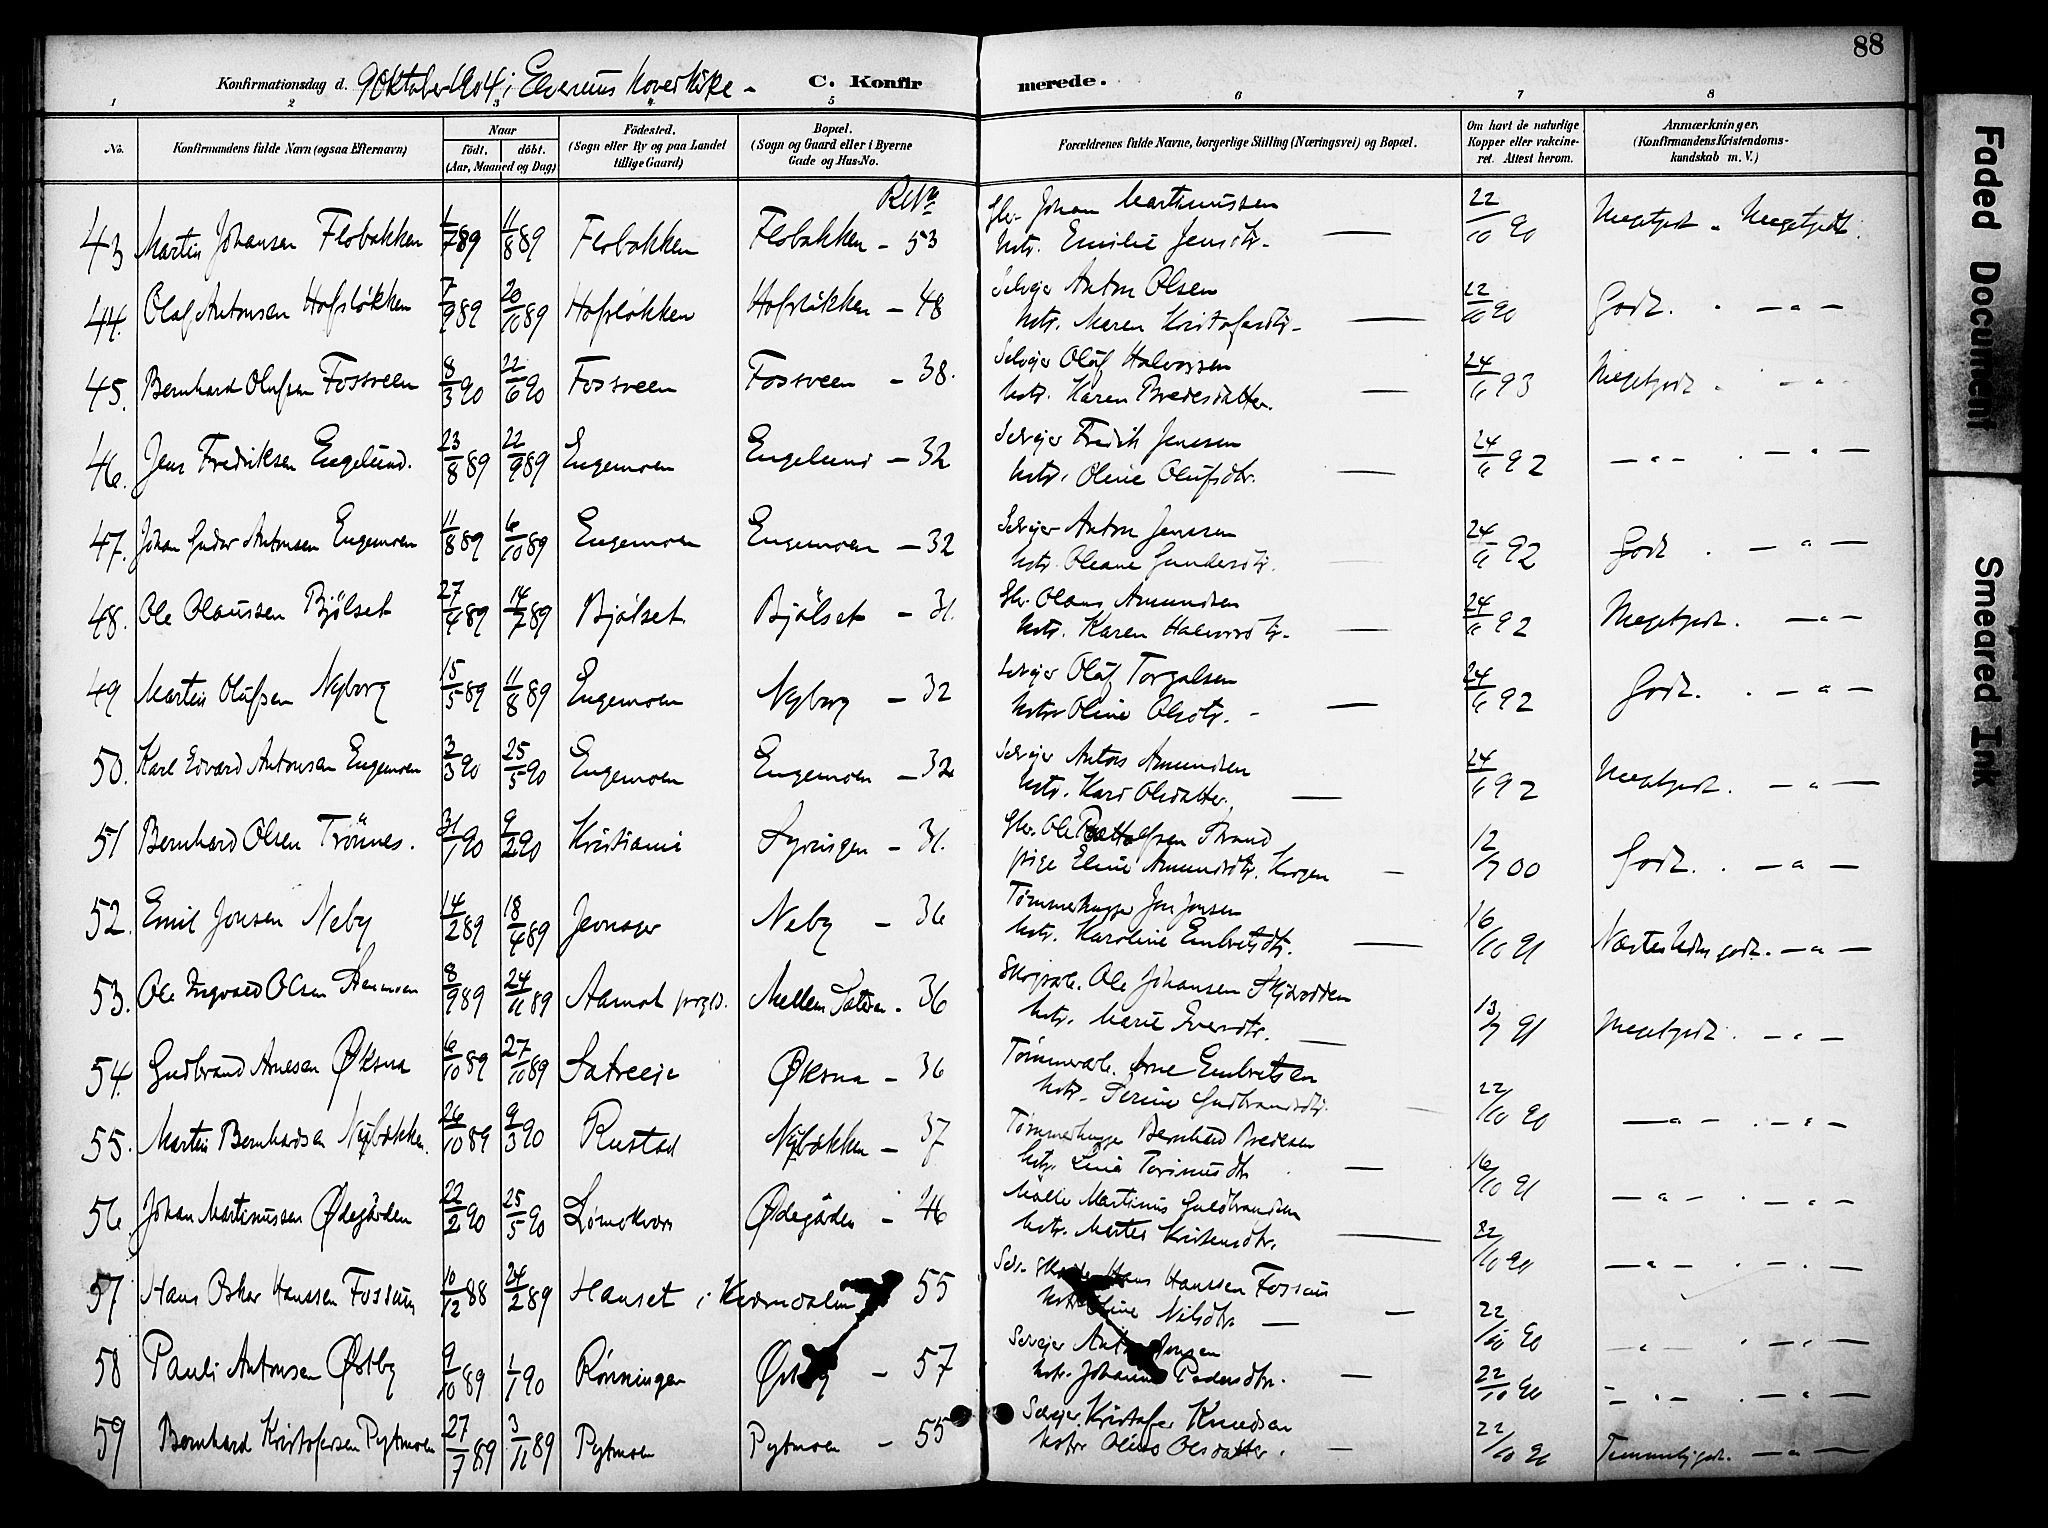 88
Konfirmationsdag d. 9 Oktober 1904 i Elverums Hovedkirke - C. Konfirmerede.
1 2 3 4 5 6 7 8
No. Konfirmandens fulde Navn (ogsaa Efternavn) Naar födt, döbt. (Aar, Maaned og Dag) Födested. (Sogn eller By og paa Landet tillige Gaard) Bopæl. (Sogn og Gaard eller i Byerne Gade og Hus-No. Forældrenes fulde Navne, borgerlige Stilling (Næringsvei) og Bopæl. Om havt de naturlige Kopper eller vakcineret. Attest herom. Anmærkninger, (Konfirmandens Kristendomskundskab m. V.)
43 Martin Johansen Flobakken 1/7 89 11/8 89 Flobakken Flobakken - 53 Johan Martinussen
Hstr. Emilie Jensdtr. — 22/10 90 Megetgodt - Megetgodt.
44. Olaf Antonsen Hofsløkken 7/9 89 20/10 89 Hofsløkken Hofsløkken - 48 Selveier Anton Olsen
Hstr. Maren Kristofersdtr. — 22/10 90 Godt. - " -
45. Bernhard Olufsen Fossveen 8/3 90 22/6 90 Fossveen Fossveen - 38. Selveier Oluf Halvorsen
Hstr. Karen Bredesdatter. — 24/6 93 Megetgodt - " -
46. Jens Fredriksen Engelund. 23/8 89 22/9 89 Engemoen Engelund - 32 Selveier Fredrik Jenssen
Hstr. Oline Olufsdtr. — 24/6 92 - " - . - " -
47. Johan Gudar Antonsen Engemoen 11/8 89 6/10 89 Engemoen Engemoen - 32 Selveier Anton Jenssen
Hstr. Oleane Gundersdtr. 24/6 92 Godt . - " -
48. Ole Olaussen Bjölset 27/4 89 14/7 89 Bjölset Bjölset - 31. Olaus Amundsen
Hstr. Karen Halvorsdtr. — 24/6 92 Megetgodt. - " -
49 Martin Olufsen Nyborg 15/5 89 11/8 89 Engemoen Nyborg - 32 Selveier Oluf Torgalsen
Hstr. Oline Olsdtr. — 24/6 92 Godt. . - " -
50. Karl Edvard Antonsen Engemoen 3/3 90 25/5 90 Engemoen Engemoen - 32 Selveier Anton Amundsen
Hstr. Kari Olsdatter. — 24/6 92 Megetgodt. - " -
51 Bernhard Olsen Trönnes. 31/1 90 9/2 90 Kristiania Syringen - 31. Ole Strand
pige Eline Amundsdtr. — 12/7 00 Godt. . - " -
52. Emil Jonsen Neby 14/2 89 18/4 89 Jevnager Neby - 36 Tømmerhugger Jon Jonsen
Hstr. Karoline Embretsdtr. — 16/10 91 Næsten Udm. godt. - " -
53. Ole Ingvald Olsen 8/9 89 24/11 89 Aamot prgjd. Mellem Sætren - 36 Skogsarb. Ole Johansen
Hstr. Marie Iversdtr. — 13/7 91 Megetgodt . - " -
54. Gudbrand Arnesen Øksna 6/10 89 27/10 89 Sætreeie Øksna - 36 Tømmerarb. Arne Embretsen
Hstr. Serine Gudbrandsdtr. 22/10 90 - " - . - " -
55. Martin Bernhardsen Nybækken. 26/10 89 9/3 90 Rustad Nybækken - 37 Tømmerhugger Bernhard Bredesen
Hstr. Lina — 16/10 91 - " - . - " -
56 Johan Martinussen Ødegården 22/2 90 25/5 90 Ødegården - 46 Møller Martinus Guldbrandsen
Hstr. Martea Kristensdtr. — 22/10 90 - " - . - " -
57 Hans Oskar Hanssen Fossum 10/12 88 24/2 89 Hanset i Kværndalen 55 Hans Hanssen Fossum
Hstr. Oline Nilsdtr. — 22/10 90 - " - . - " -
58 Pauli Antonsen Østby 9/10 89 1/1 90 Rønningen Østby - 57 Selveier Anton Jonsen
Hstr. Johanne Pedersdtr. — 22/10 90 - " - . - " -
59 Bernhard Kristofersen Pytmoen 27/7 89 3/11 89 Pytmoen Pytmoen - 55 Selveier Kristofer Knudsen
Hstr. Oline Olsdatter. — 22/10 90 Temmelig godt. - " -
Faded Document
Smeared Ink